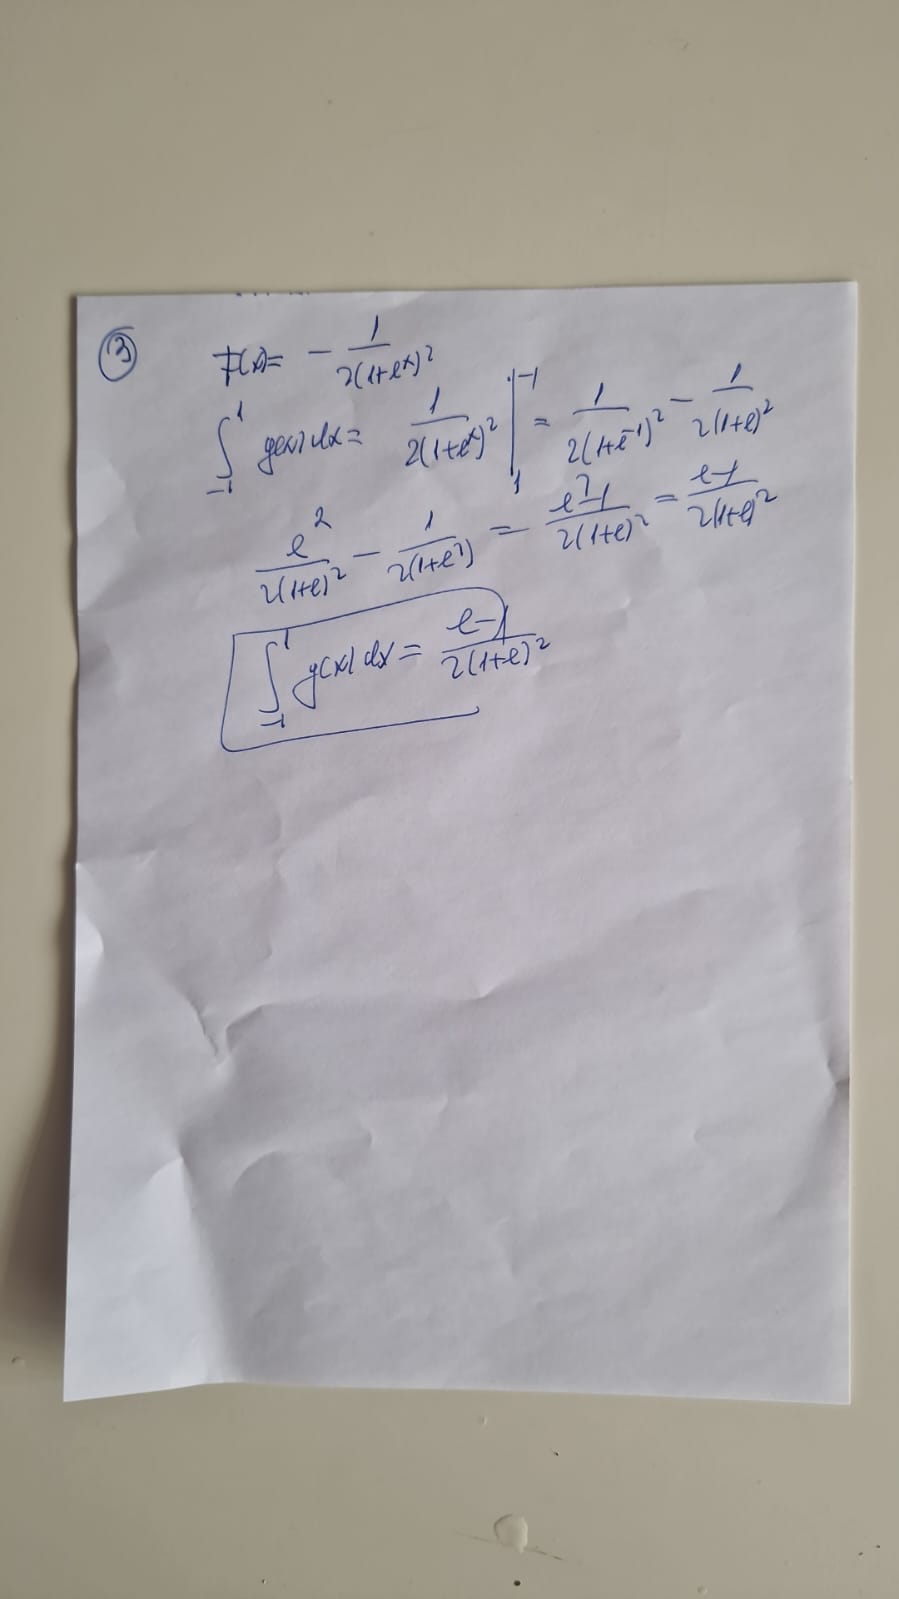 ③ F(x)= - 1/(2(1+e^x)^2)
∫_{-1}^{1} g(x) dx = 1/(2(1+e^x)^2) |_{1}^{-1} = 1/(2(1+e^{-1})^2) - 1/(2(1+e)^2)
e^2/(2(1+e)^2) - 1/(2(1+e^2)) = e^2-1/(2(1+e)^2) = e-1/(2(1+e)^2)
∫_{-1}^{1} g(x) dx = e-1/(2(1+e)^2)